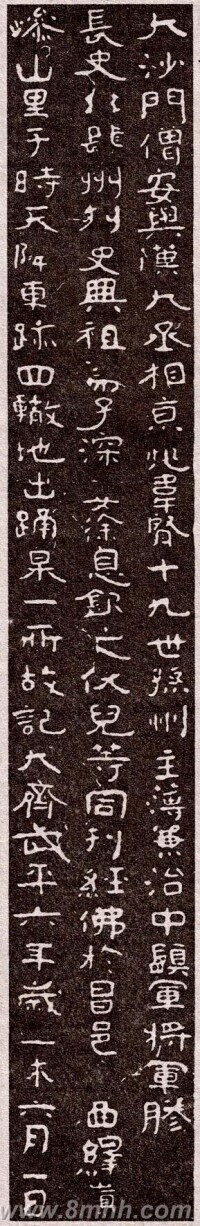 大沙門僧安與漢大丞相京兆韋賢十九世孫州主薄兼治中鎮軍將軍膠
長史行州刺史興祖弟子深妻徐息欽之伏兒等同刊經佛於昌邑西繹
山里于時天降車跡四轍地出踊泉一所故記大齊武平六年歲一未六月一日
www.8mhh.com